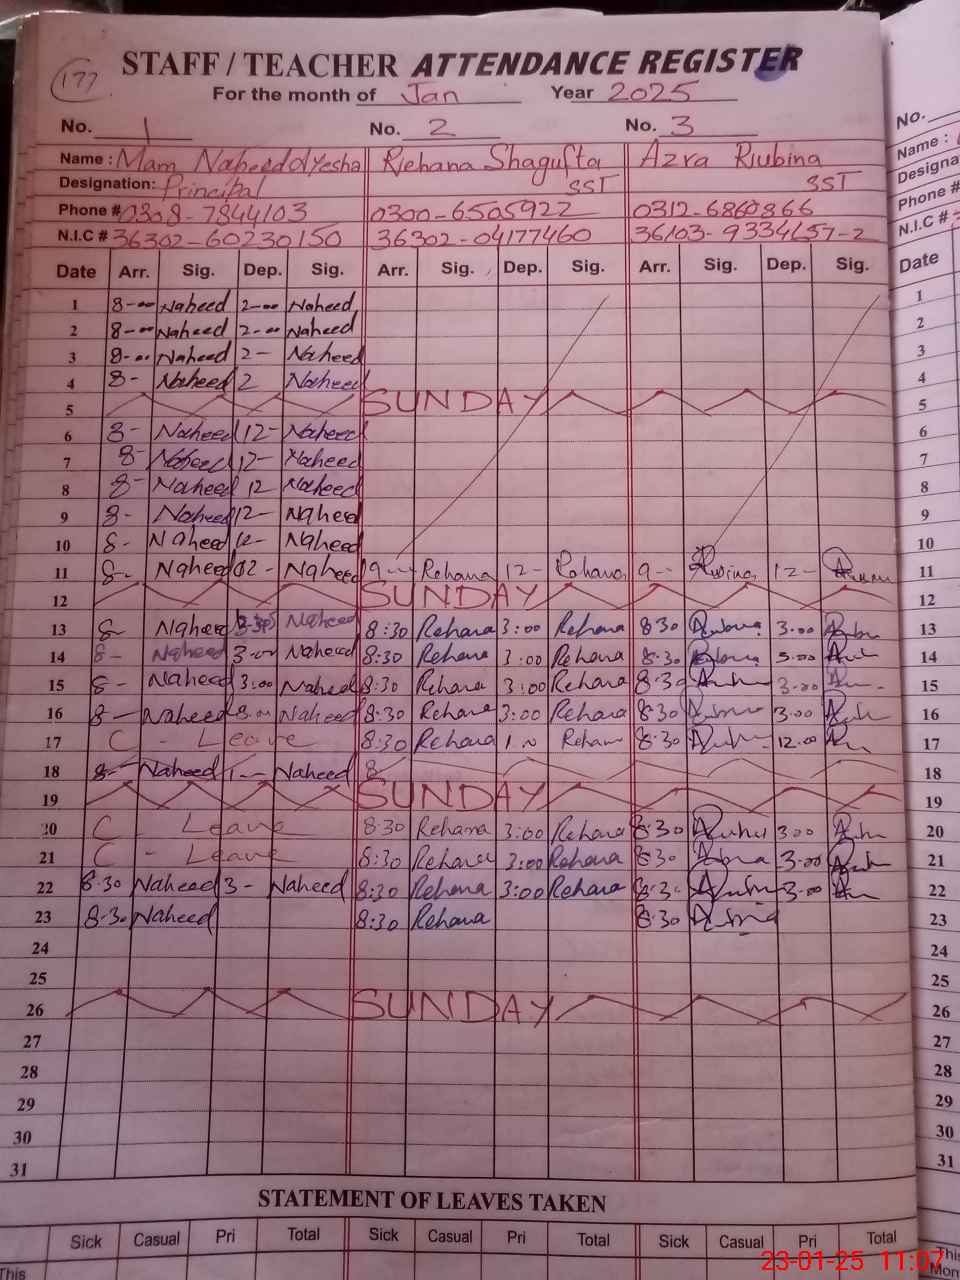 177
STAFF / TEACHER ATTENDANCE REGISTER
For the month of Jan Year 2025
No. 1 No. 2 No. 3
Name : Mam Naheed Ayesha Rehana Shagufta Azra Rubina
Designation: Principal SST SST
Phone # 0308-7844103 0300-6505922 0312-6860866
N.I.C # 36302-60230150 36302-04177460 36103-9334657-2
Date Arr. Sig. Dep. Sig. Arr. Sig. Dep. Sig. Arr. Sig. Dep. Sig.
1 8-00 Naheed 2-00 Naheed 1
2 8-00 Naheed 2-00 Naheed 2
3 8-00 Naheed 2- Naheed 3
4 8- Naheed 2 Naheed 4
5 SUNDAY 5
6 8- Naheed 12- Naheed 6
7 8- Naheed 12- Naheed 7
8 8- Naheed 12 Naheed 8
9 8- Naheed 12- Naheed 9
10 8- Naheed 12- Naheed 10
11 8- Naheed 02- Naheed 9-- Rehana 12- Rehana 9-- Rubina 12- 11
12 SUNDAY 12
13 8- Naheed 3:30 Naheed 8:30 Rehana 3:00 Rehana 8:30 3:00 13
14 8- Naheed 3-00 Naheed 8:30 Rehana 3:00 Rehana 8:30 3:00 14
15 8- Naheed 3:00 Naheed 8:30 Rehana 3:00 Rehana 8:30 3-00 15
16 8- Naheed 3:00 Naheed 8:30 Rehana 3:00 Rehana 8:30 3:00 16
17 C - Leave 8:30 Rehana 1.00 Rehana 8:30 12:00 17
18 8- Naheed 1-- Naheed 8 18
19 SUNDAY 19
20 C - Leave 8:30 Rehana 3:00 Rehana 8:30 3:00 20
21 C - Leave 8:30 Rehana 3:00 Rehana 8:30 3-00 21
22 8:30 Naheed 3- Naheed 8:30 Rehana 3:00 Rehana 8:3- 3-00 22
23 8-30 Naheed 8:30 Rehana 8:30 23
24 24
25 25
26 SUNDAY 26
27 27
28 28
29 29
30 30
31 31
STATEMENT OF LEAVES TAKEN
Sick Casual Pri Total Sick Casual Pri Total Sick Casual Pri Total
This
No.
Name :
Designa
Phone #
N.I.C #
Date
1
2
3
4
5
6
7
8
9
10
11
12
13
14
15
16
17
18
19
20
21
22
23
24
25
26
27
28
29
30
31
This
Mon
23-01-25 11:07